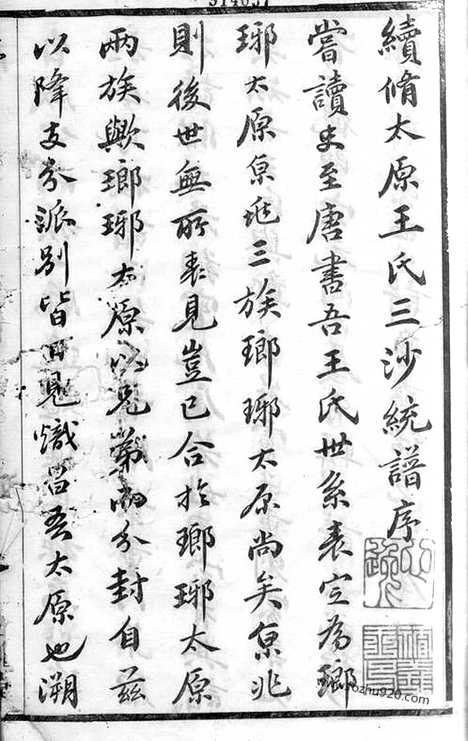 續脩太原王氏三沙統譜序
嘗讀史至唐書吾王氏世系表定為瑯
琊太原京兆三族瑯琊太原尚矣京兆
則後世無所表見豈已合於瑯琊太原
兩族歟瑯琊太原以兄弟而分封自茲
以降支分派別皆
吾太原也溯
zhu920.com